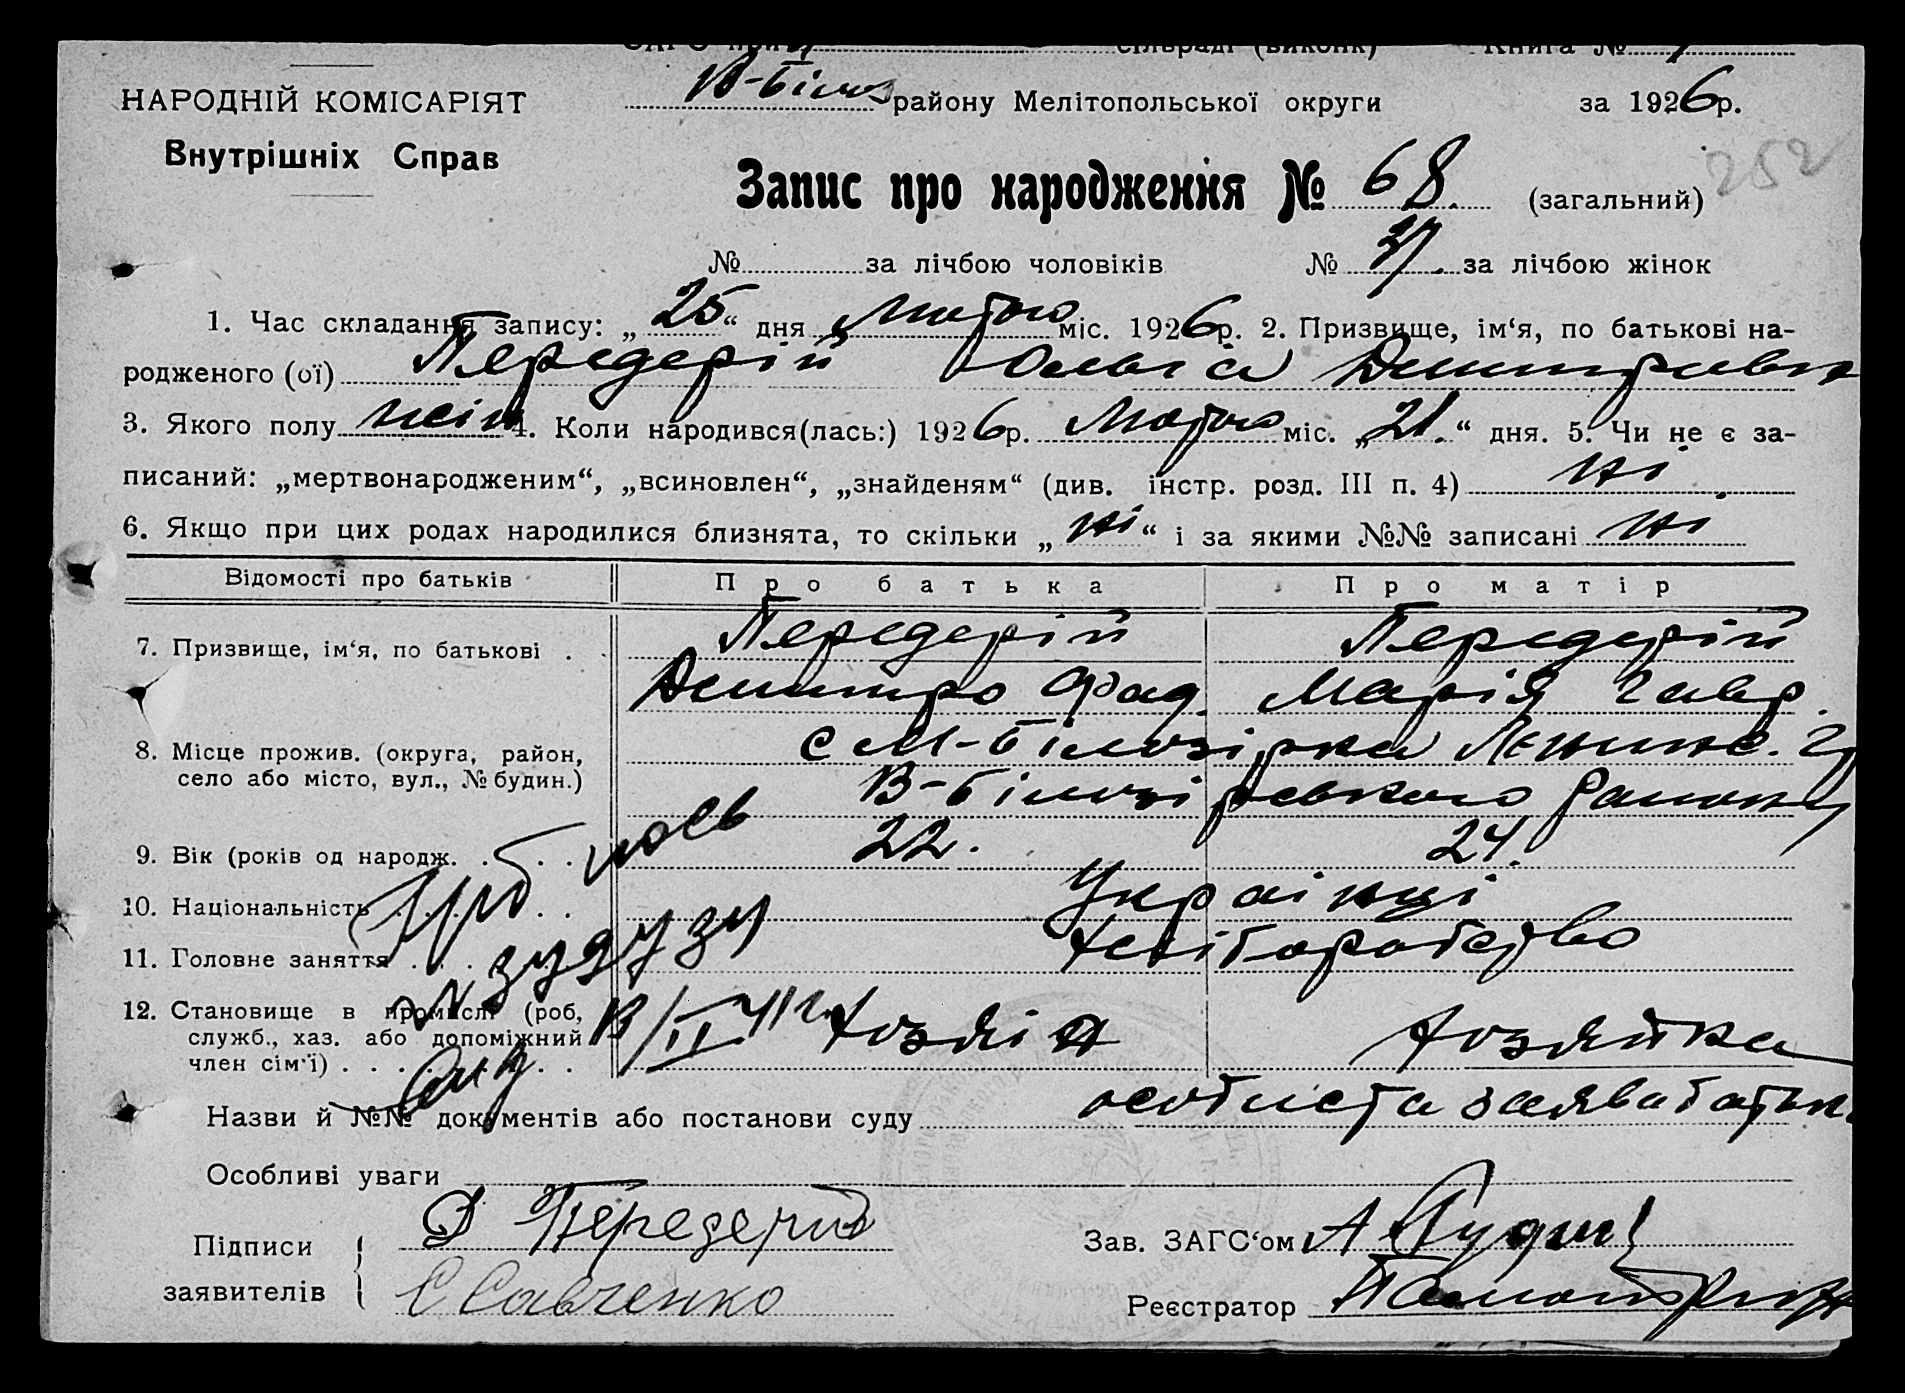 сільраді (виконк) Книга №
НАРОДНІЙ КОМІСАРІЯТ
В-Біло району Мелітопольської округи за 1926р.
Внутрішніх Справ
252
Запис про народження № 68. (загальний)
№ за лічбою чоловіків № за лічбою жінок
1. Час складання запису: „25“ дня Лютого міс. 1926р. 2. Призвище, ім‘я, по батькові на-
родженого (ої) Передерій Ольга Дмитрівн
3. Якого полу жін 4. Коли народився(лась:) 1926р. Лютого міс. „21.“ дня. 5. Чи не є за-
писаний: „мертвонародженим“, „всиновлен“, „знайденям“ (див. інстр. розд. III п. 4) ні
6. Якщо при цих родах народилися близнята, то скільки „ні“ і за якими №№ записані ні
Відомості про батьків Про батька Про матір
7. Призвище, ім‘я, по батькові . . Передерій Передерій
Дмитро Фад. Марія Гавр.
8. Місце прожив. (округа, район, с М-Білозірка
село або місто, вул., № будин.) В-Білозірського Району
9. Вік (років од народж. . . . 22. 24.
10. Національність . . . . . Українці
11. Головне заняття . . . . Хліборобство
12. Становище в промислі (роб,
служб., хаз. або допоміжний Хозяїн Хозяйка
член сім‘ї) . . . . . .
Назви й №№ документів або постанови суду особиста заява батьк
Особливі уваги
Підписи Д Передерий Зав. ЗАГС‘ом А
заявителів С Савченко Реєстратор